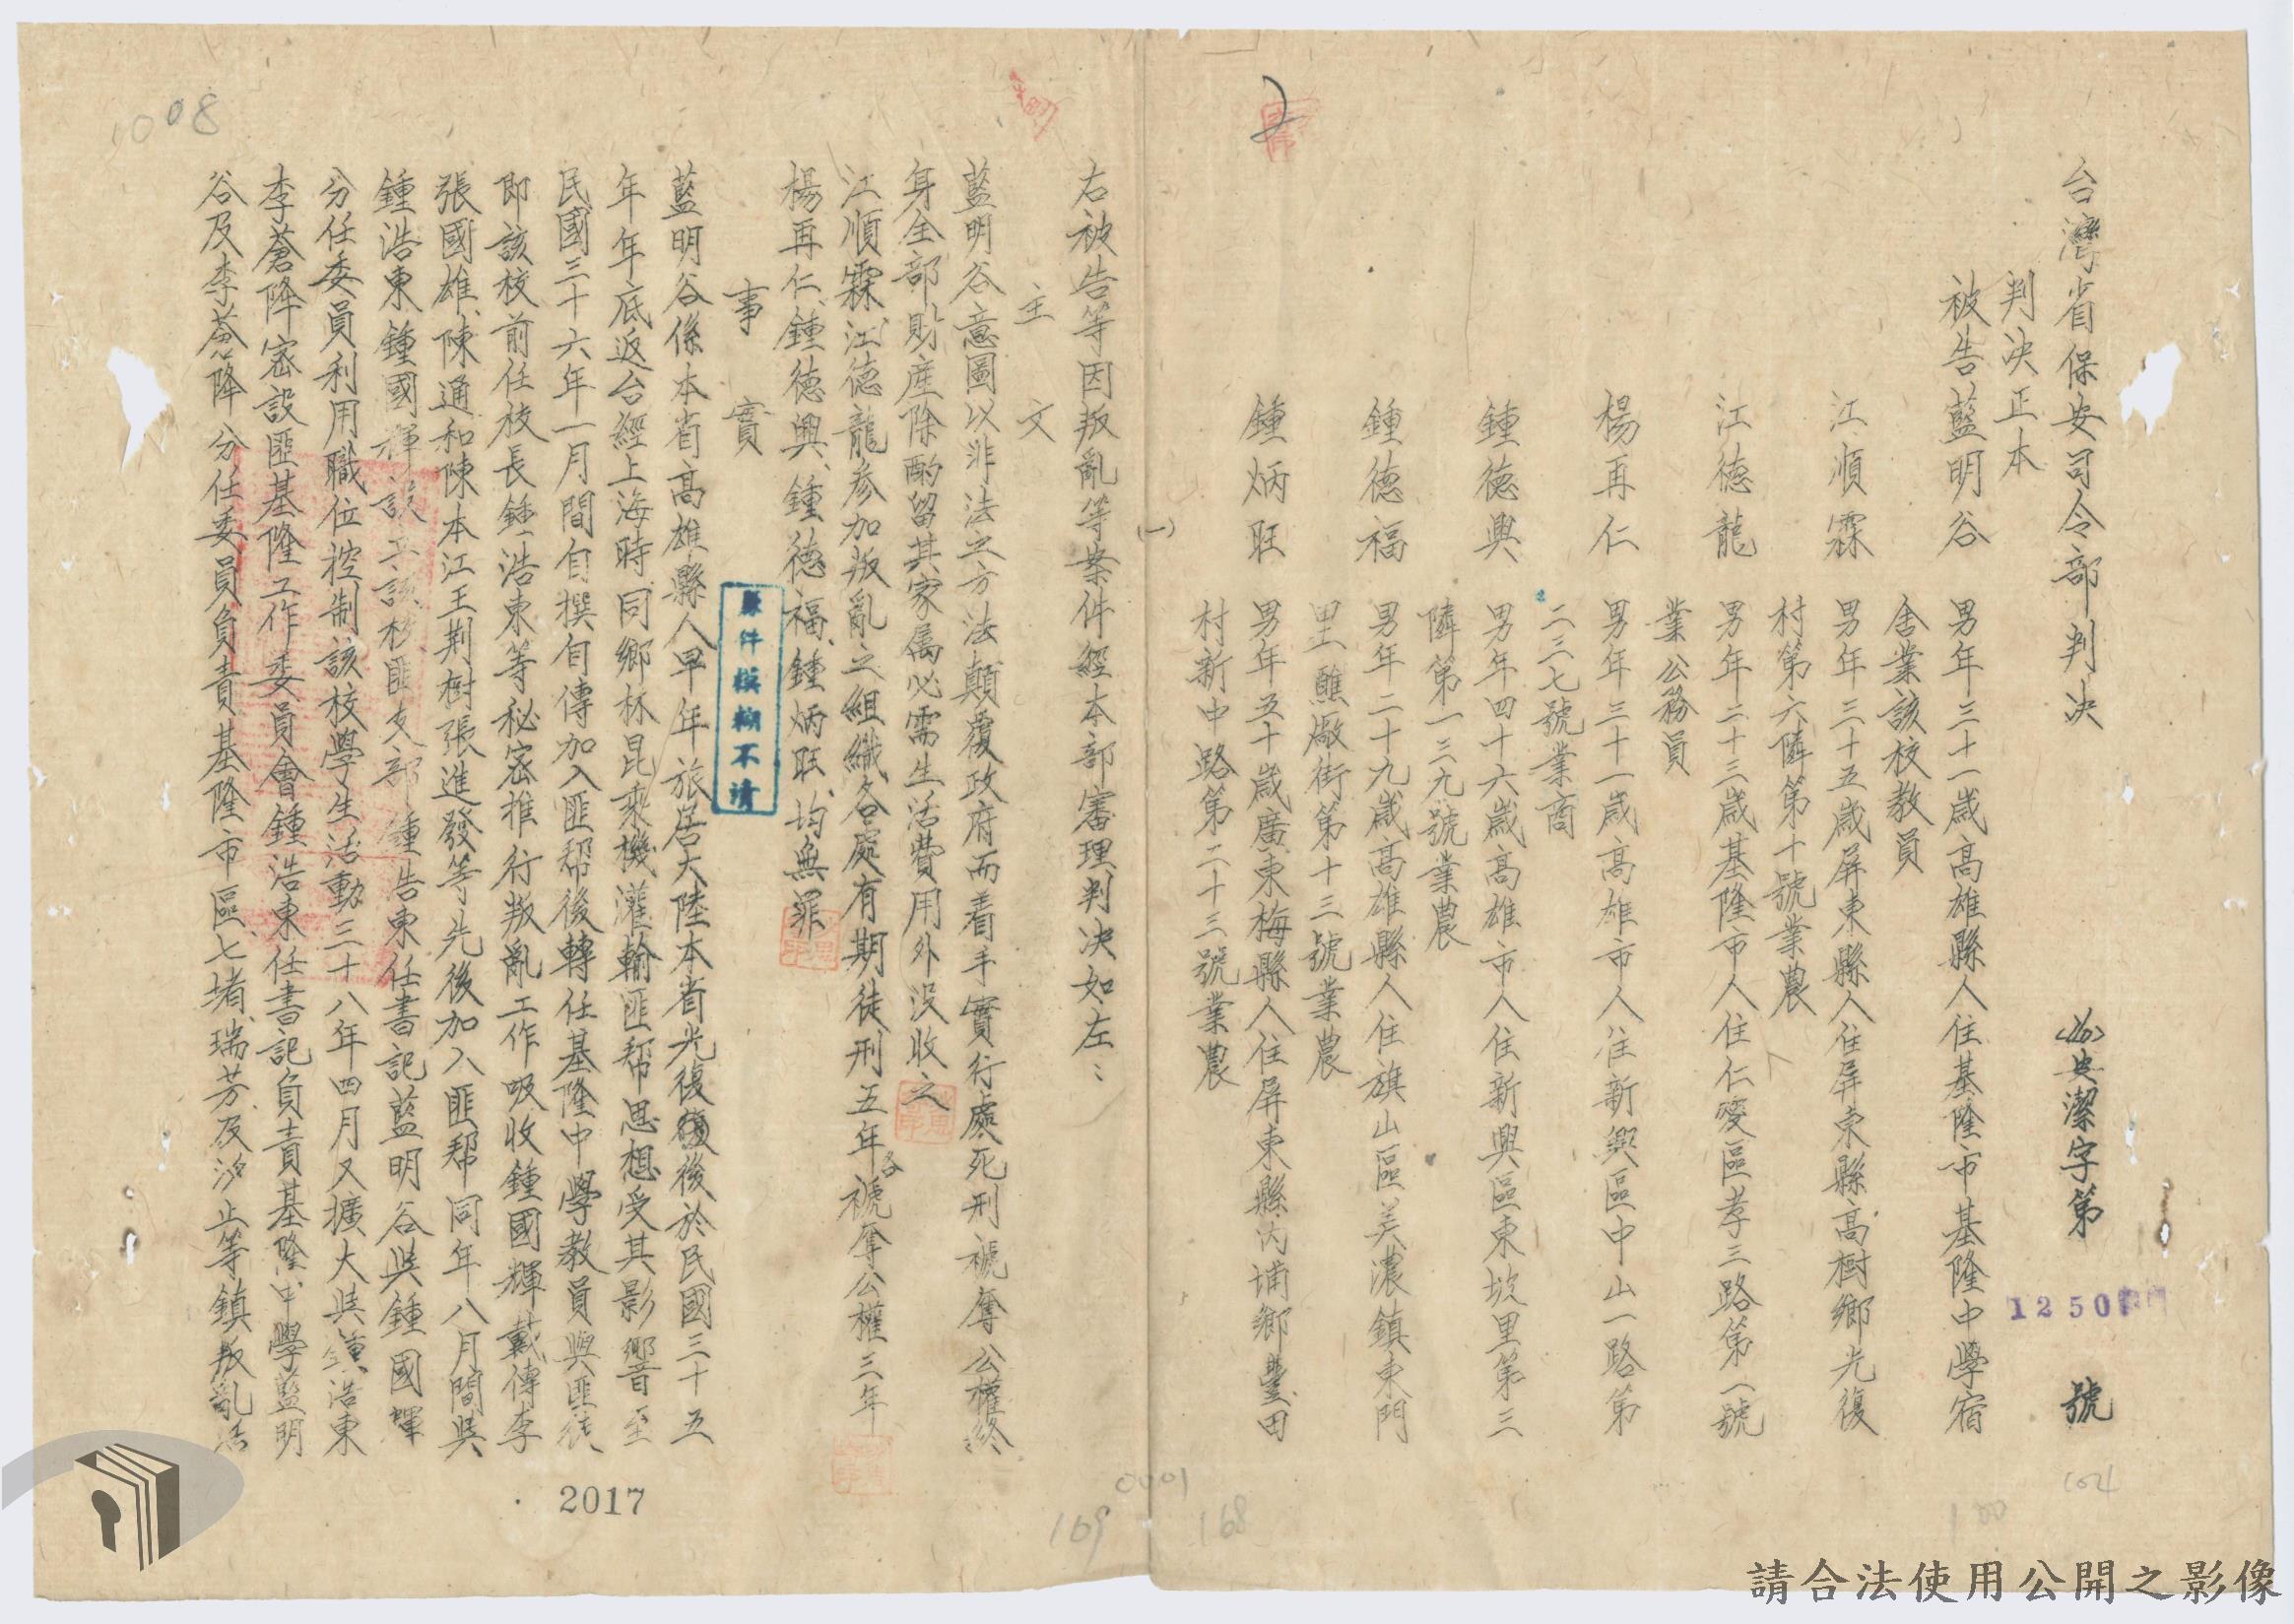 台灣省保安司令部判决
安潔字第
1250
號
判决正本
被告藍明谷
男年三十一歲高雄縣人住基隆市基隆中學宿
舍業該校教員
江順霖
男年三十五歲屏東縣人住屏東縣高樹鄉光復
村第六隣第十號業農
江德龍
男年二十三歲基隆市人住仁愛區孝三路第一號
業公務員
楊再仁
男年三十一歲高雄市人住新興區中山一路第
二三七號業商
鍾德興
男年四十六歲高雄市人住新興區東坡里第三
隣第一三九號業農
鍾德福
男年二十九歲高雄縣人住旗山區美濃鎮東門
里醮廠街第十三號業農
鍾炳旺
男年五十歲廣東梅縣人住屏東縣內埔鄉豐田
村新中路第二十三號業農
(一)
右被告等因叛亂等案件經本部審理判决如左：
主文
藍明谷意圖以非法之方法顛覆政府而着手實行處死刑褫奪公權終
身全部財產除酌留其家屬必需生活費用外沒收之
江順霖、江德龍參加叛亂之組織各處有期徒刑五年各褫奪公權三年
楊再仁、鍾德興、鍾德福、鍾炳旺、均無罪
事實
原件模糊不清
藍明谷係本省高雄縣人早年旅居大陸本省光復後於民國三十五
年年底返台經上海時同鄉林昆乘機灌輸匪幫思想受其影響至
民國三十六年一月間自撰自傳加入匪幫後轉任基隆中學教員與匪徒
即該校前任校長鍾浩東等秘密推行叛亂工作吸收鍾國輝戴傳李
張國雄、陳通和陳本江王荆樹張進發等先後加入匪幫同年八月間與
鍾浩東鍾國輝設立該校匪支部鍾浩東任書記藍明谷與鍾國輝
分任委員利用職位控制該校學生活動三十八年四月又擴大與鍾浩東
李蒼降密設匪基隆工作委員會鍾浩東任書記負責基隆中學藍明
谷及李蒼降分任委員負責基隆市區七堵、瑞芳及汐止等鎮叛亂活
1008
2017
0001
169
168
100
104
請合法使用公開之影像